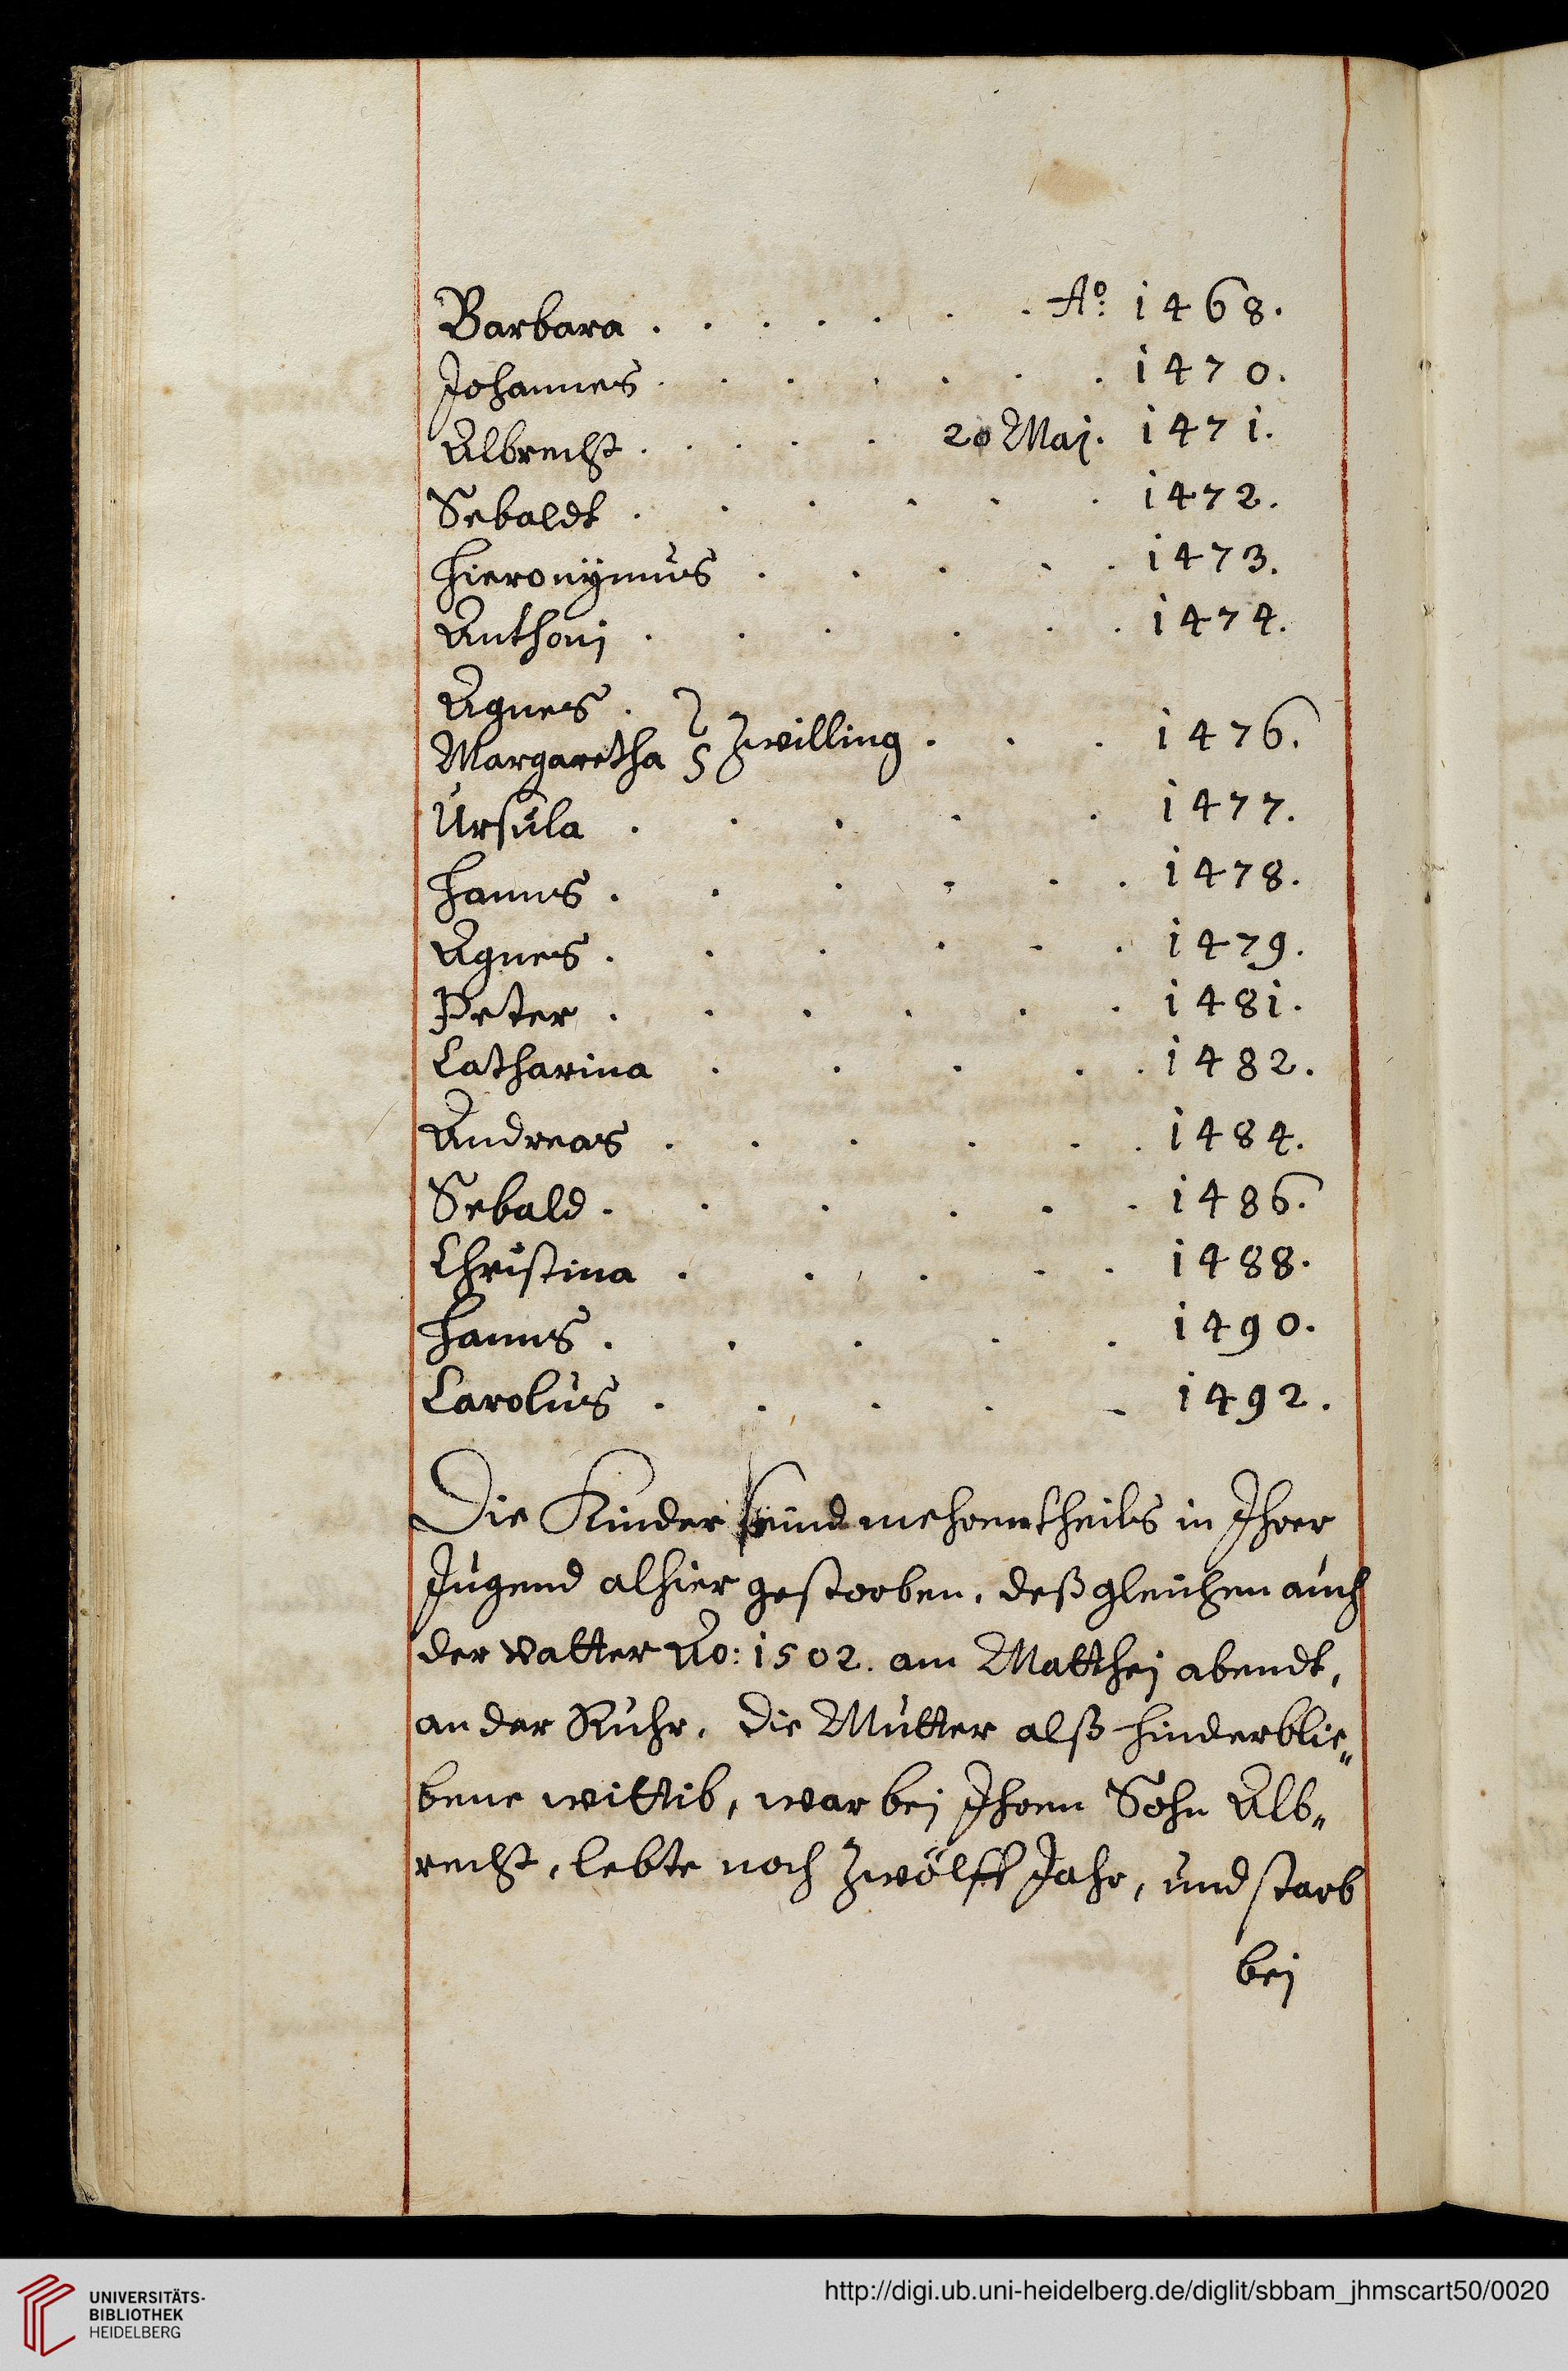 Barbara . . . . . . . Ao: 1468.
Johannes . . . . . . . 1470.
Albrecht . . . . . 20 Maj. 1471.
Sebaldt . . . . . . 1472.
Hieronÿmus . . . . . 1473.
Anthoni . . . . . . 1474.
Agnes .
Margaretha } Zwilling . . . 1476.
Ursula . . . . . 1477.
Hanns . . . . . . 1478.
Agnes . . . . . . 1479.
Peter . . . . . . 1481.
Catharina . . . . . 1482.
Andreas . . . . . . 1484.
Sebald . . . . . . 1486.
Christina . . . . . 1488.
Hanns . . . . . 1490.
Carolus . . . . . 1492.
Die Kinder seind mehrentheils in Ihrer
Jugend alhier gestorben, deßgleichen auch
der vatter Ao: 1502. am Matthej abendt,
an der Ruhr. die Mutter alß hinderblie„
bene wittib, war bei Ihren Sohn Alb„
recht, lebte noch Zwölff Jahr, und starb
bei
UNIVERSITÄTS-
BIBLIOTHEK
HEIDELBERG
http://digi.ub.uni-heidelberg.de/diglit/sbbam_jhmscart50/0020